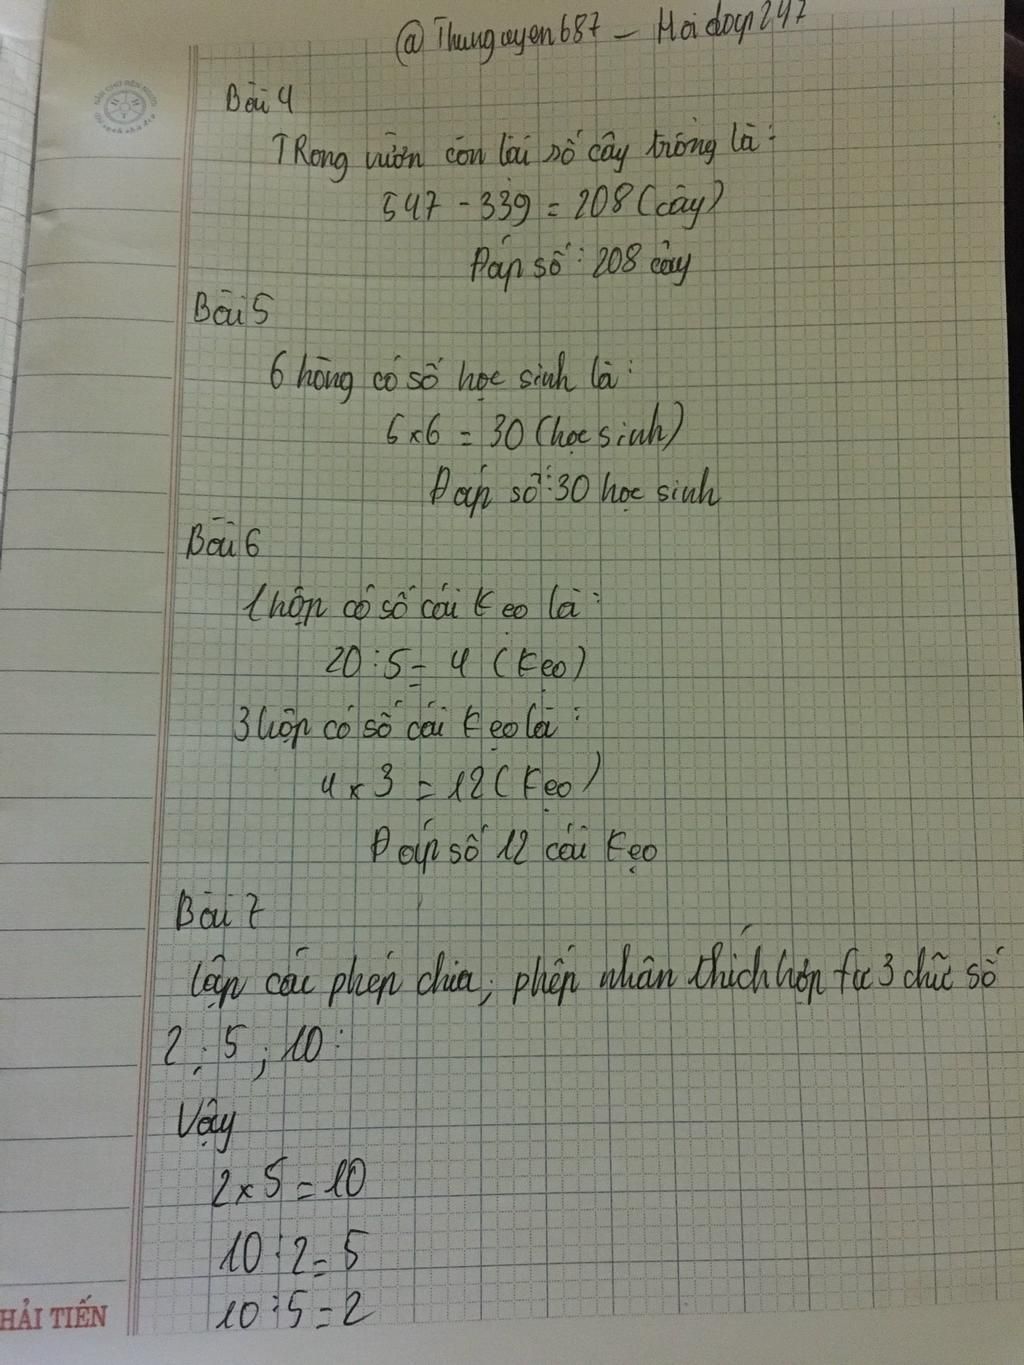 @Thunguyen687 - Hoidap247
Bài 4
TRong vườn còn lại số cây trồng là:
547 - 339 = 208 (cây)
Đáp số: 208 cây
Bài 5
6 hàng có số học sinh là:
5 x 6 = 30 (học sinh)
Đáp số: 30 học sinh
Bài 6
1 hộp có số cái kẹo là:
20 : 5 = 4 (kẹo)
3 hộp có số cái kẹo là:
4 x 3 = 12 (kẹo)
Đáp số 12 cái kẹo
Bài 7
lập các phép chia, phép nhân thích hợp từ 3 chữ số
2 ; 5 ; 10:
Vậy
2 x 5 = 10
10 : 2 = 5
10 : 5 = 2
HẢI TIẾN